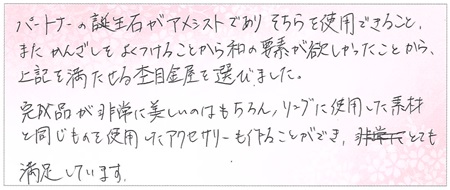 パートナーの誕生石がアメシストであり そちらを使用できること、
また かんざしを よくつけることから和の要素が欲しかったことから、
上記を満たせる杢目金屋を選びました。
完成品が非常に美しいのはもちろん、リングに使用した素材
と同じものを使用したアクセサリーも作ることができ、とても
満足しています。